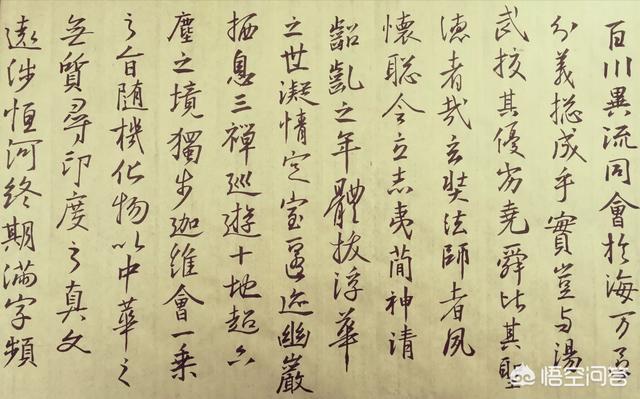 百川異流同會於海万區
分義揔成乎實豈与湯
武校其優劣堯舜比其聖
德者哉玄奘法師者夙
懷聡令立志夷簡神清
齠齔之年體拔浮華
之世凝情定室匿迹幽巖
栖息三禪巡遊十地超六
塵之境獨步迦維會一乘
之旨随機化物以中華之
無質尋印度之真文
遠涉恒河終期滿字頻
悟空问答